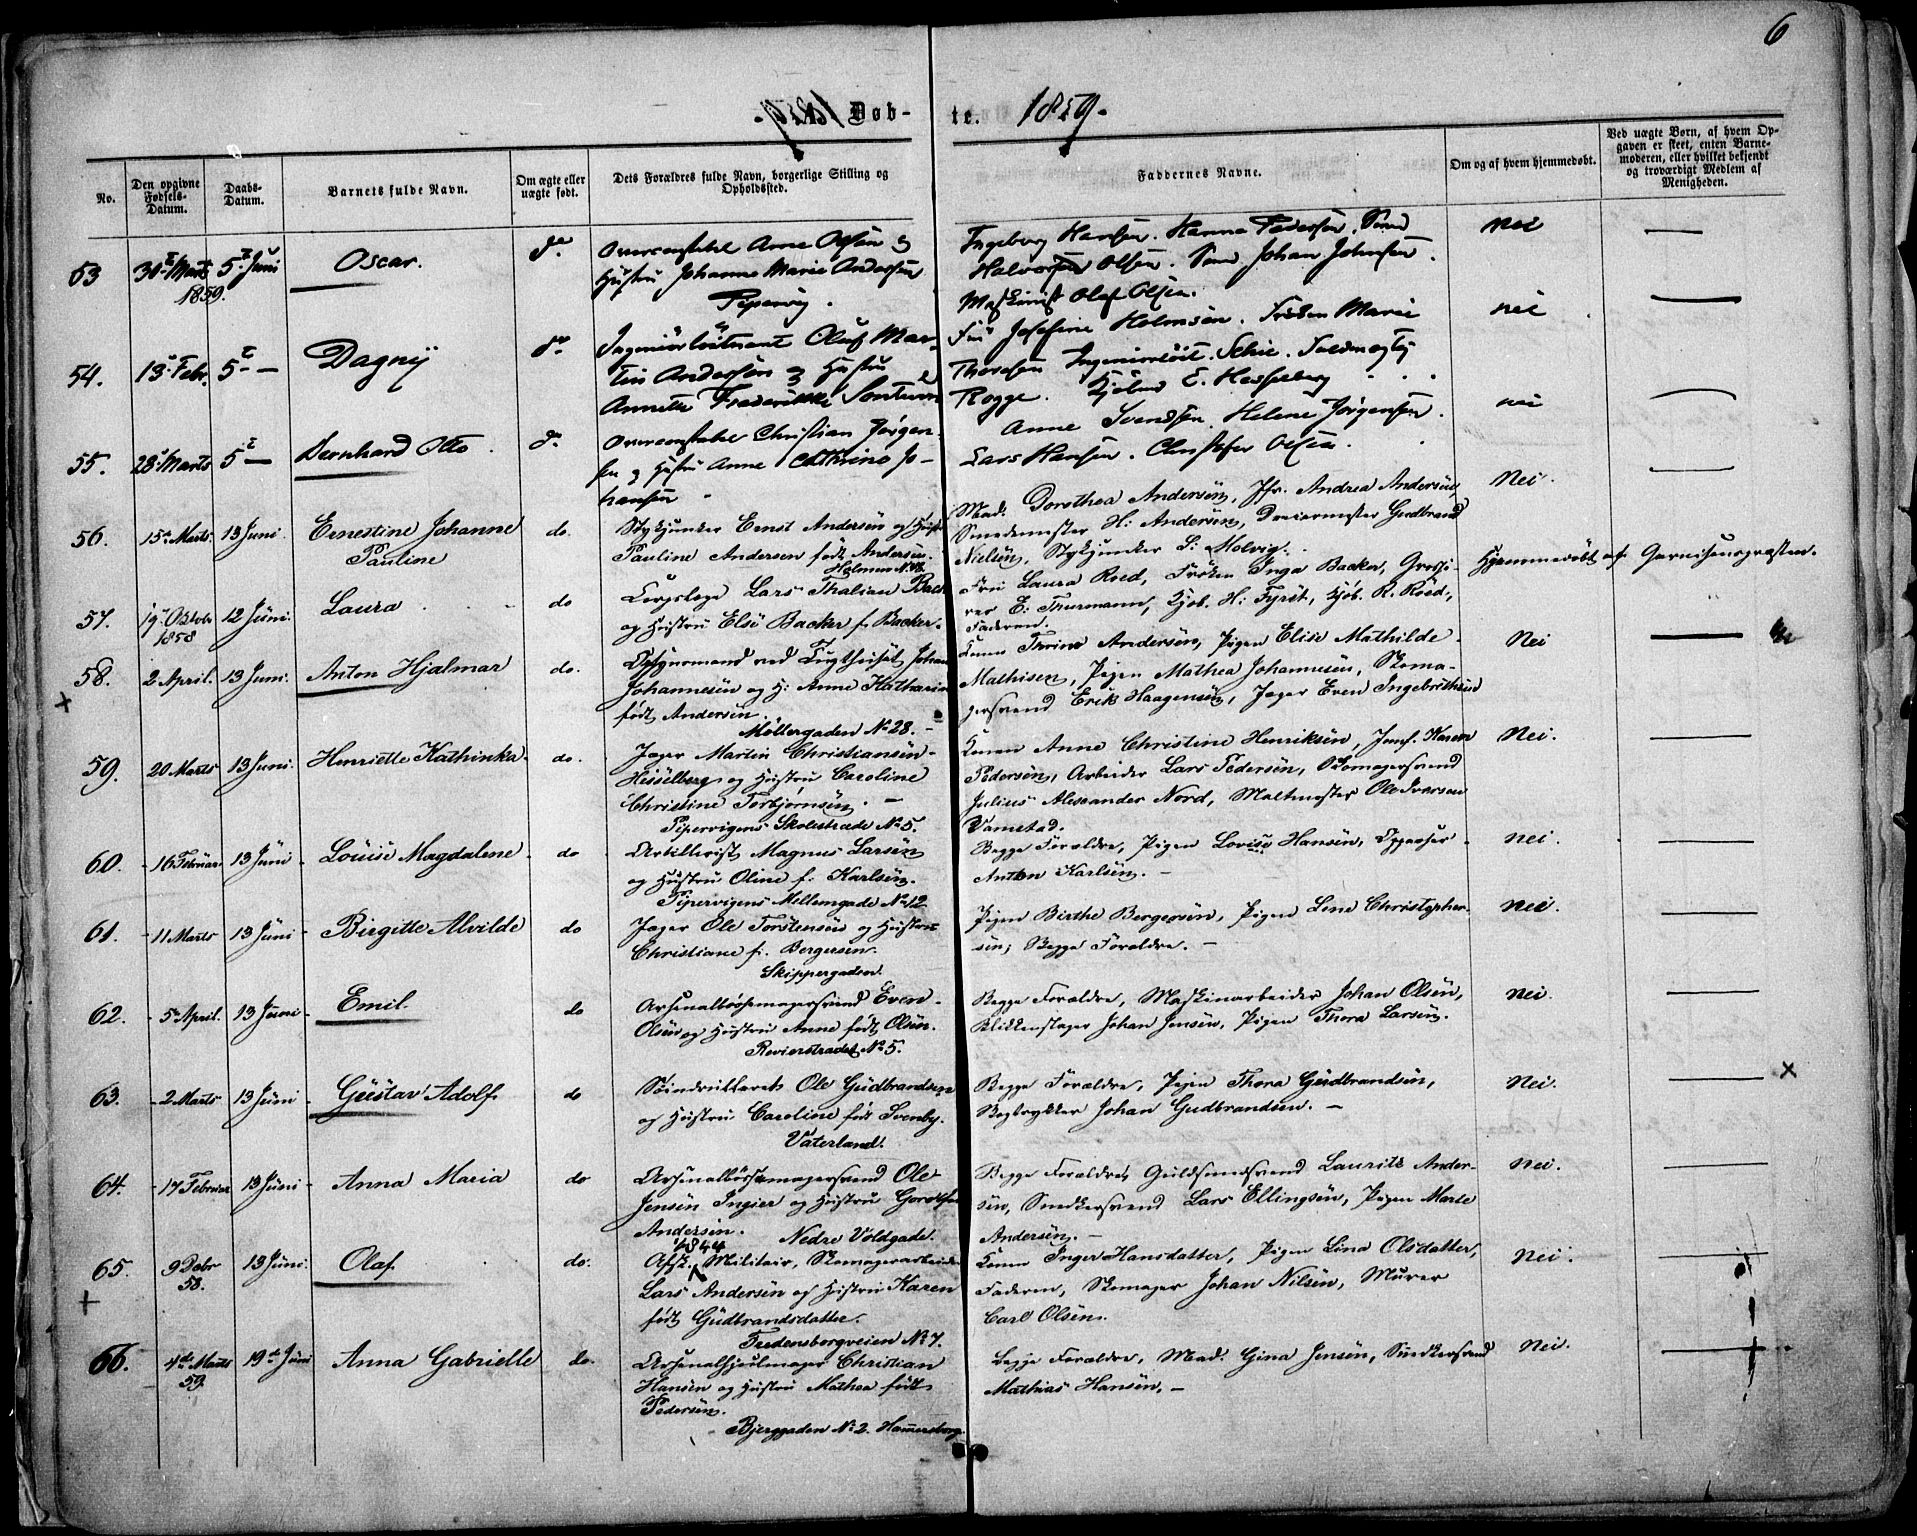 6
Døb-
te. 1859.
No.
Den opgivne Fødsels-Datum.
Daabs-Datum.
Barnets fulde Navn.
Om ægte eller uægte født.
Dets Forældres fulde Navn, borgerlige Stilling og Opholdssted.
Faddernes Navne.
Om og af hvem hjemmedøbt.
Ved uægte Børn, af hvem Opgaven er skeet, enten Barnemoderen, eller hvilket bekjendt og troværdigt Medlem af Menigheden.
53 30te Marts 1859. 5te Juni Oscar. do
Overconstabel Arne Olsen og
Hustru Johanne Marie Andersen
Pipervig.
Ingeborg Hansen. Hanna Pedersen.
Halvorsen Olsen. Johan Johnsen.
Maskinist Olaf Olsen.
nei
54. 13 Febr. 5te — Dagny do
Ingeniørløitnant Oluf Mar-
tin Andersson og Hustru
Annette Frederikke
Fru Josefine Holmsen. Frøken Marie
Thoresen Ingenieurlöit. Schie. Fuldmægtig
Rogge. Kjøbmd E. Hesselberg
nei
55. 28 Marts 5te — Bernhard Otto. do
Overconstabel Christian Jørgen-
sen og Hustru Anne Cathrine Jo-
hansen
Anne Svendsen. Helene Jørgensen.
Lars Hansen. Christofer Olsen.
nei
56. 15de Marts 13 Juni. Ernestine Johanne
Pauline do.
Stykjunker Ernst Andersen og Hustru
Pauline Andersen født Andersen.
Mad. Dorothea Andersen, Jfr. Andrea Andersen,
Smedemester H. Andersen, Dreiermester Gudbrand
Nielsen, Stykjunker S. Molvig.
Nei.
57. 19 Oktobr 1858 12 Juni. Laura do
Corpslæge Lars Thalian Back
og Hustru Else Backer f. Backer.
Fru Laura Roed, Frøken Inga Backer, Grosse-
rer E. Thurmann, Kjøb. H. Fyrst, Kjøb. R. Roed,
Faderen.
Hjemmedøbt af Garnisonspræsten.
58. 2 April. 13 Juni. Anton Hjalmar do.
Opsynsmand ved Tugthuset Johan
Johannesen og H: Anne Katharine
født Andersen.
Møllergaden No 28.
Konen Thrine Andersen, Pigen Elise Mathilde
Mathisen, Pigen Mathea Johannesen, Skoma-
gersvend Erik Haagensen, Jæger Even Ingebrethsen
Nei
59. 20 Marts 13 Juni. Henriette Kathinka do.
Jæger Martin Christiansen
Heiselberg og Hustru Caroline
Christine Torbjørnsen.
Pipervigens Skolestræde No 5.
Konen Anne Christine Henriksen, Jomf. Karen
Pedersen, Arbeider Lars Pedersen, Skomagersvend
Julius Alexander Nord, Maltmester Ole Iversen
Vamstad.
Nei.
60. 16 Februar 13 Juni Louise Magdalene do
Artillerist Magnus Larsen
og Hustru Oline f. Karlsen.
Pipervigens Mellemgade No 12
Begge Forældre, Pigen Lovise Hansen, Oppasser
Anton Karlsen.
Nei.
61. 11 Marts 13 Juni Birgitte Alvilde do
Jæger Ole Torstensen og Hustru
Christiane f. Bergersen.
Skippergaden.
Pigen Birthe Bergersen, Pigen Line Christopher-
sen, Begge Forældre.
Nei.
62. 5te April. 13 Juni Emil. do
Arsenalbøssemagersvend Even
Olsen og Hustru Anne født Olsen.
Revierstrædet No 5.
Begge Forældre, Maskinarbeider Johan Olsen,
Blikkenslager Johan Jensen, Pigen Thora Larsen.
Nei.
63. 2 Marts 13 Juni Gustav Adolf. do
Ole Gudbrandsen
og Hustru Caroline født Svenby.
Vaterland.
Begge Forældre, Pigen Thora Gudbrandsen,
Bogtrykker Johan Gudbrandsen.
Nei.
64. 17 Februar 13 Juni Anna Maria do
Arsenalbøssemagersvend Ole
Jensen Ingier og Hustru
Andersen. Nedre Voldgade.
Begge Forældre, Guldsmedsvend Laurits Ander-
sen, Snedkersvend Lars Ellingsen, Pigen Marte
Andersen.
Nei.
65. 9 Debr 58. 13 Juni. Olaf do.
1844
Afsk. Militair, Skomagerarbeider
Lars Andersen og Hustru Karen
født Gudbrandsdatter.
Fredensborgveien No 7.
Konen Inger Hansdatter, Pigen Lina Olsdatter,
Faderen, Skomager Johan Nilsen, Murer
Carl Olsen.
Nei.
66. 4de Marts 59. 19de Juni Anna Gabrielle do.
Arsenalhjulmager Christian
Hansen og Hustru Mathea født
Pedersen.
Bjerggaden No 2. Hammersborg.
Begge Forældre, Mad. Gina Jensen, Snedkersvend
Mathias Hansen.
Nei.